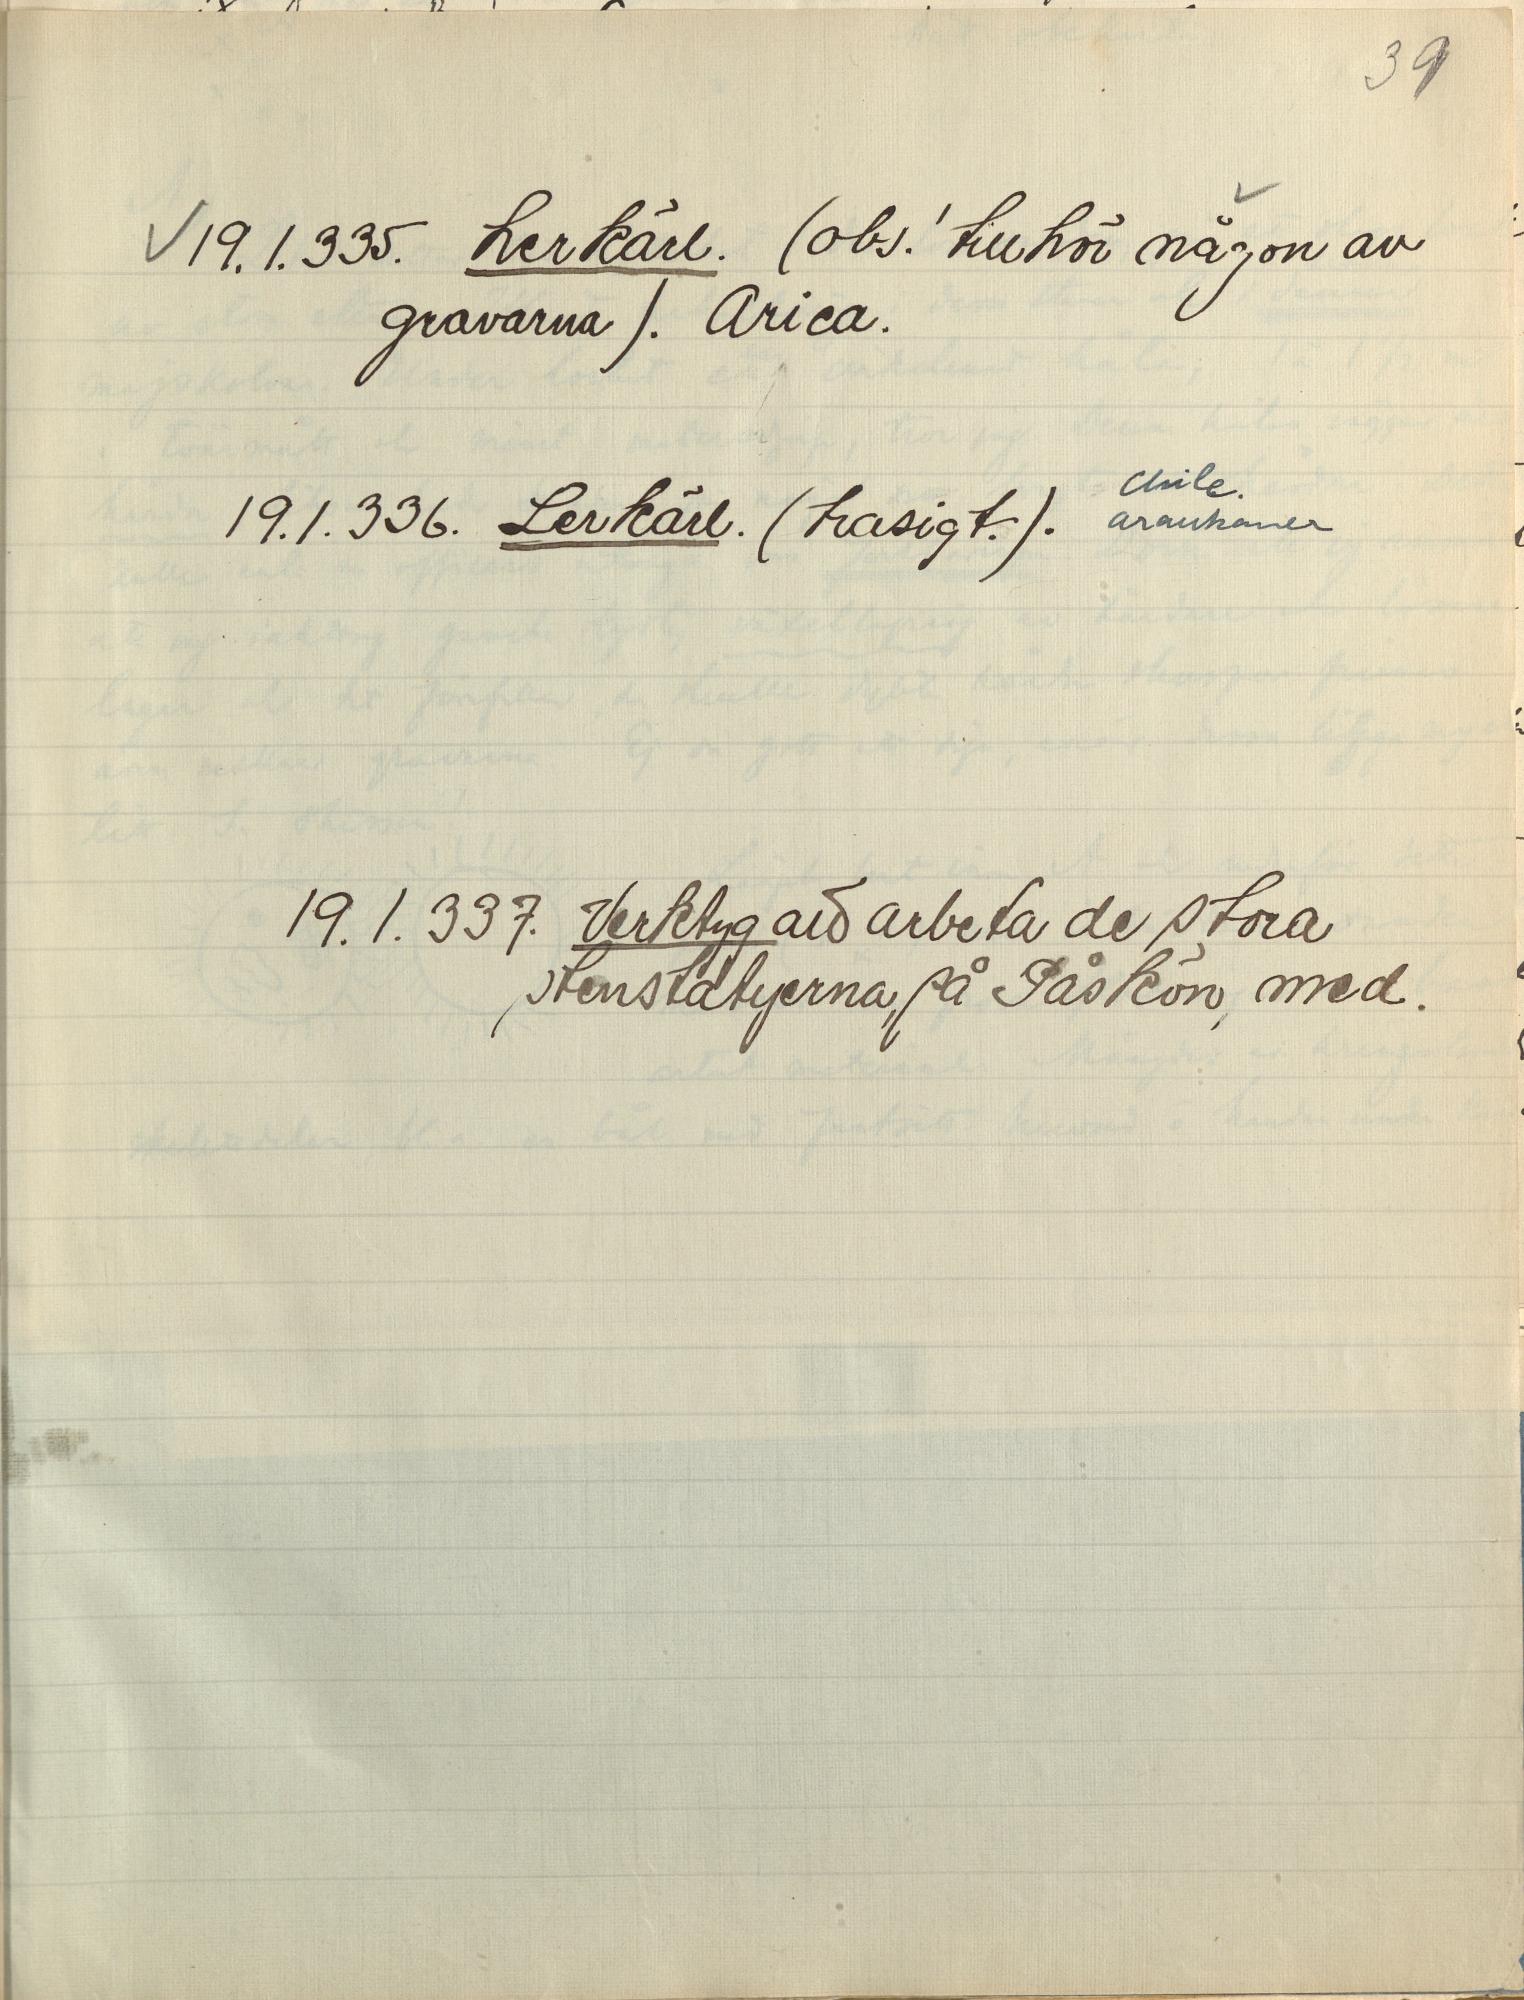 39
√19.1.335. Lerkärl. (obs.! tillhör någon av
gravarna). Arica.
19.1.336. Lerkärl. (trasigt.). Chile.
araukaner
19.1.337. Verktyg att arbeta de stora
stenstatyerna, på Påskön, med.